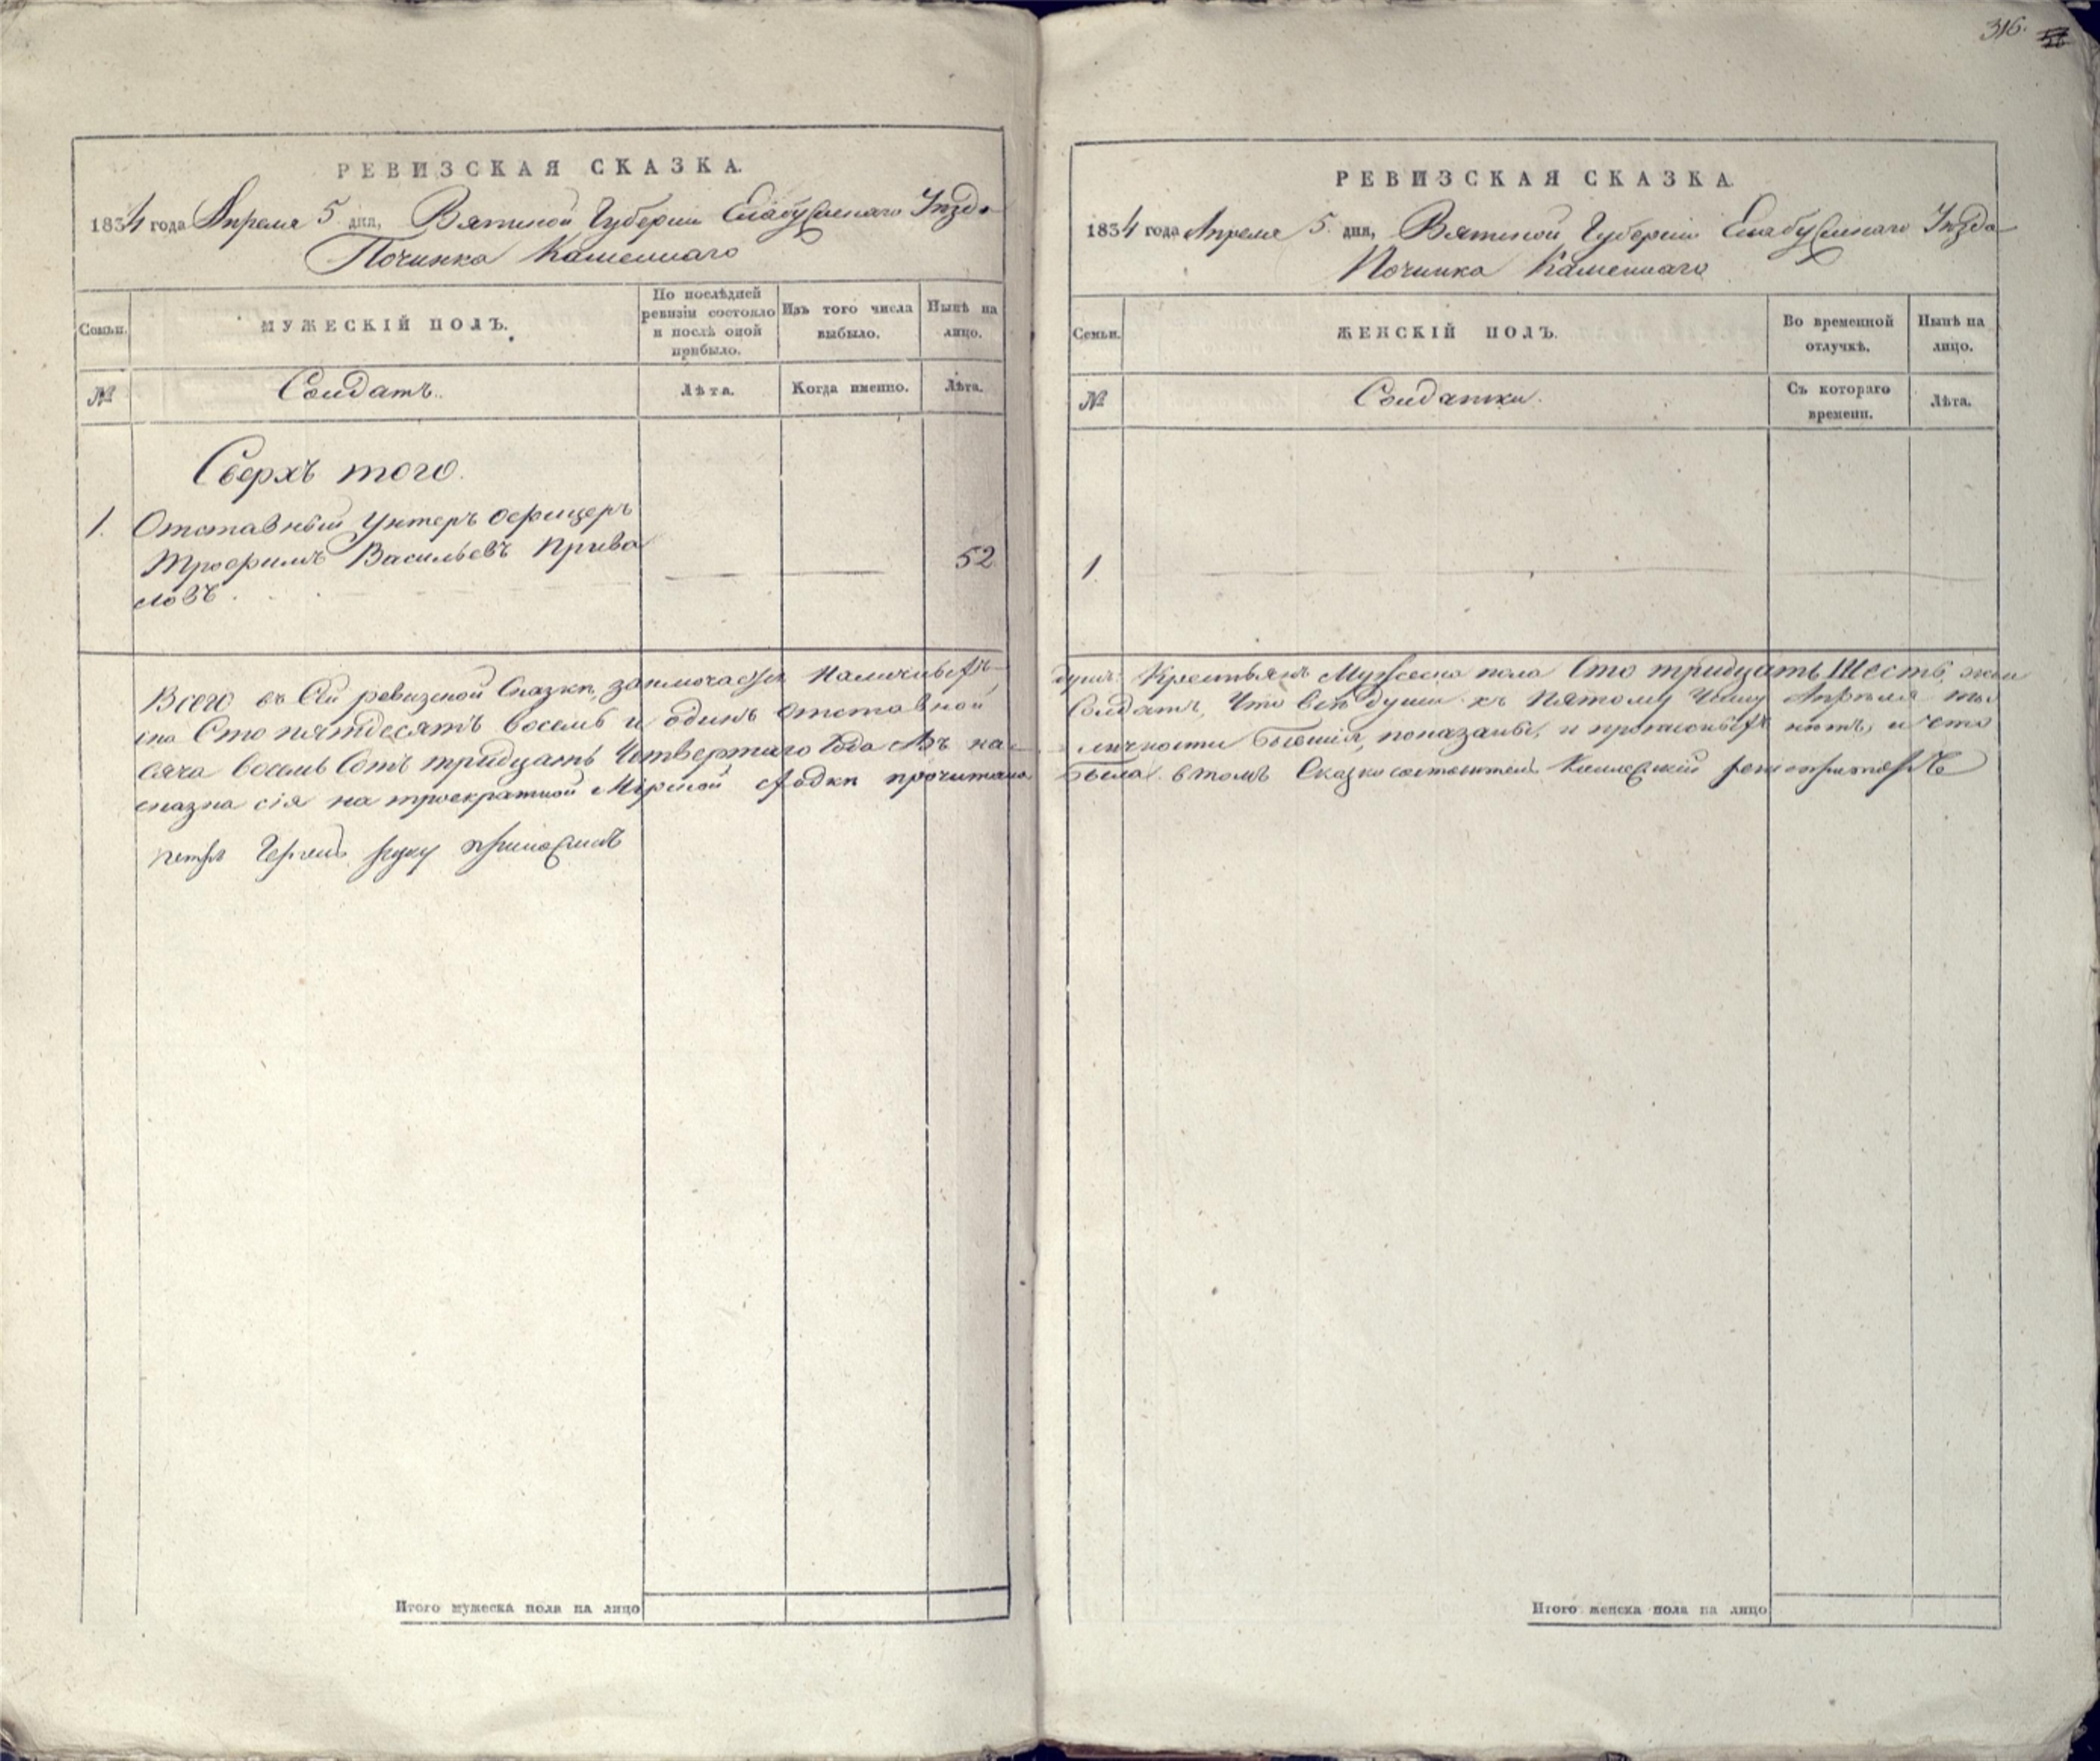 316.
РЕВИЗСКАЯ СКАЗКА.
1834 года Апреля 5 дня, Вятской Губернии Елабужскаго Уѣзда
Починка Каменнаго
Семьи.
МУЖЕСКІЙ ПОЛЪ.
По послѣдней ревизіи состояло и послѣ оной прибыло.
Изъ того числа выбыло.
Нынѣ на лицо.
№
Солдатъ.
Лѣта.
Когда именно.
Лѣта.
Сверхъ того.
1. Отставный Унтеръ офицеръ
Трофимъ Васильевъ Прива
ловъ.
52
Всего въ Сей ревизской Сказкѣ заключается Наличныхъ
ска Сто пятдесятъ восемь и одинъ отставной
сяча восемь Сотъ тридцать Четвертаго Года Въ на
сказка сія на троекратной Мирской сходкѣ прочитана
петръ руку приложилъ
Итого мужеска пола на лицо
РЕВИЗСКАЯ СКАЗКА.
1834 года Апреля 5 дня, Вятской Губерніи Елабужскаго Уѣзда
Починка Каменнаго
Семьи.
ЖЕНСКІЙ ПОЛЪ.
Во временной отлучкѣ.
Нынѣ на лицо.
№
Солдатки.
Съ котораго времени.
Лѣта.
1.
душъ Крестьянъ Мужеска пола Сто тридцать Шесть, жен
Солдатъ, Что всѣ души къ Пятому Числу Апрѣля ты
личности бывшія, показаны, и прописныхъ нѣтъ, и что
была втомъ Сказкосоставитель Коллежскій регистраторъ
Итого женска пола на лицо